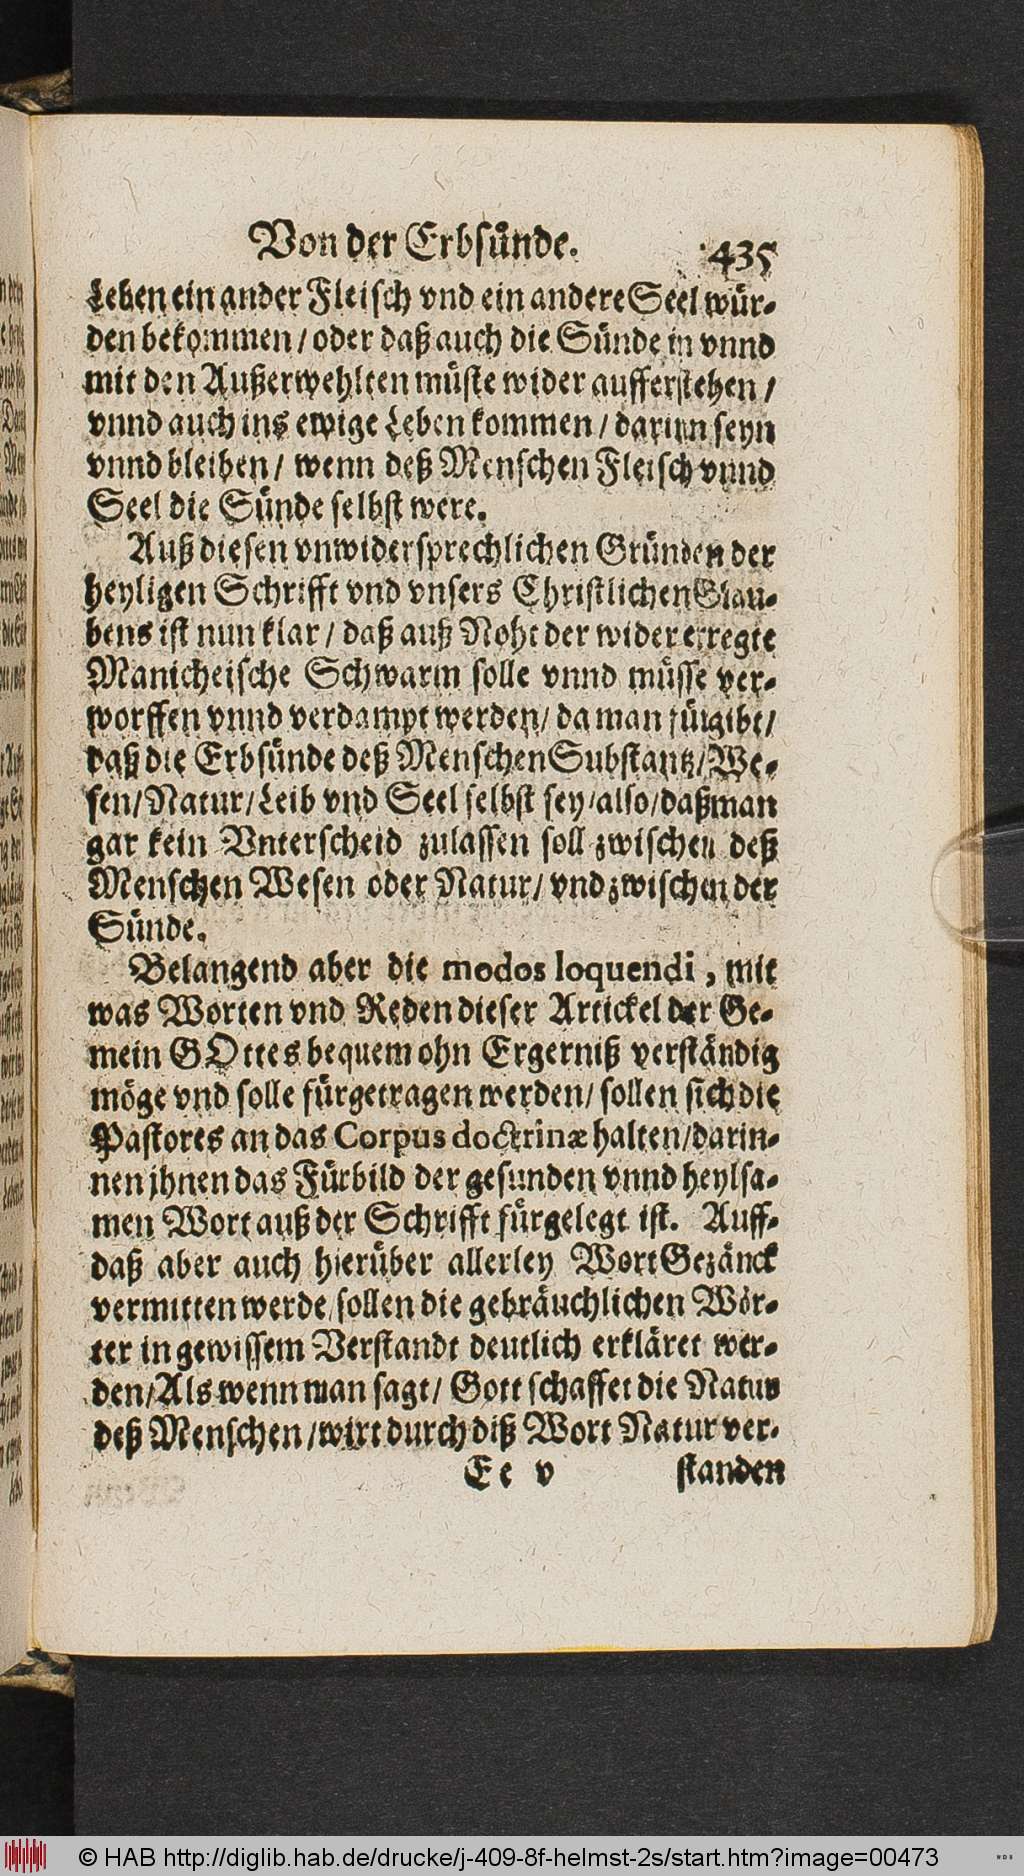 Von der Erbsünde. 435
Leben ein ander Fleisch vnd ein andere Seel wür-
den bekommen / oder daß auch die Sünde in vnnd
mit den Außerwehlten müste wider aufferstehen /
vnnd auch ins ewige Leben kommen / darinn seyn
vnnd bleiben / wenn deß Menschen Fleisch vnnd
Seel die Sünde selbst were.
Auß diesen vnwidersprechlichen Gründen der
heyligen Schrifft vnd vnsers Christlichen Glau-
bens ist nun klar / daß auß Noht der wider erregte
Manicheische Schwarm solle vnnd müsse ver-
worffen vnnd verdampt werden / da man fürgibt /
daß die Erbsünde deß Menschen Substantz / We-
sen / Natur / Leib vnd Seel selbst sey / also / daß man
gar kein Vnterscheid zulassen soll zwischen deß
Menschen Wesen oder Natur / vnd zwischen der
Sünde.
Belangend aber die modos loquendi, mit
was Worten vnd Reden dieser Artickel der Ge-
mein GOttes bequem ohn Ergerniß verständig
möge vnd solle fürgetragen werden / sollen sich die
Pastores an das Corpus doctrinæ halten / darin-
nen jhnen das Fürbild der gesunden vnnd heylsa-
men Wort auß der Schrifft fürgelegt ist. Auff-
daß aber auch hierüber allerley Wort Gezänck
vermitten werde / sollen die gebräuchlichen Wör-
ter in gewissem Verstandt deutlich erkläret wer-
den / Als wenn man sagt / Gott schaffet die Natur
deß Menschen / wirt durch diß Wort Natur ver-
Ee v standen
© HAB http://diglib.hab.de/drucke/j-409-8f-helmst-2s/start.htm?image=00473